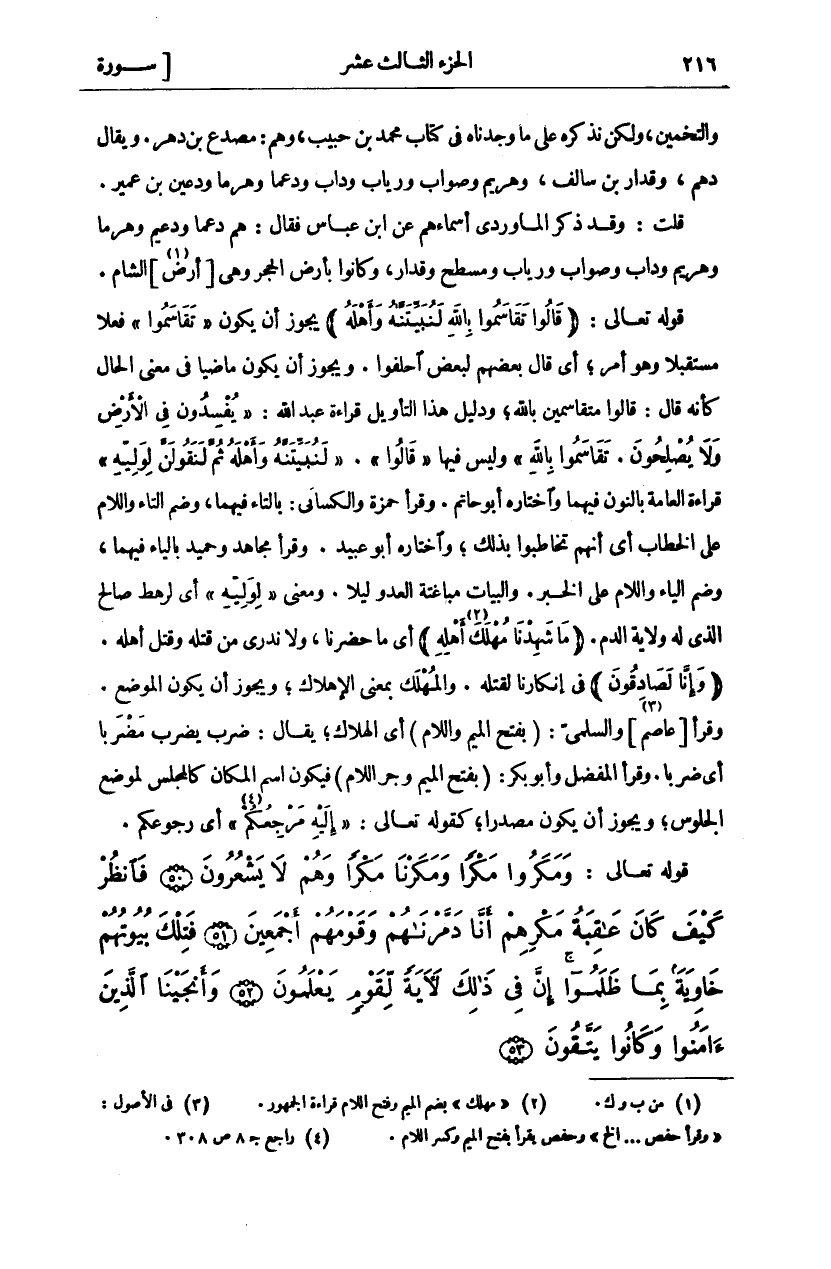 ٢١٦ الجزء الثالث عشر [ سورة
والتخمين، ولكن نذكره على ما وجدناه فى كتاب محمد بن حبيب، وهم: مصدع بن دهر. ويقال
دهم ، وقدار بن سالف ، وهريم وصواب ورياب وداب ودعما وهرما ودعين بن عمير .
قلت : وقد ذكر الماوردى أسماءهم عن ابن عباس فقال : هم دعما ودعيم وهرما
وهريم وداب وصواب ورياب ومسطح وقدار، وكانوا بأرض الحجر وهى [ أرض (١)] الشام .
قوله تعالى : ﴿ قَالُوا تَقَاسَمُوا بِاللهِ لَنُبَيِّتَنَّهُ وَأَهْلَهُ ﴾ يجوز أن يكون « تَقَاسَمُوا » فعلا
مستقبلا وهو أمر ؛ أى قال بعضهم لبعض ٱحلفوا . ويجوز أن يكون ماضيا فى معنى الحال
كأنه قال : قالوا متقاسمين بالله؛ ودليل هذا التأويل قراءة عبد الله : « يُفْسِدُون فِى الْأَرْضِ
وَلَا يُصْلِحُونَ . تَقَاسَمُوا بِاللهِ » وليس فيها « قَالُوا » . « لَنُبَيِّتَنَّهُ وَأَهْلَهُ ثُمَّ لَنَقُولَنَّ لِوَلِيِّهِ »
قراءة العامة بالنون فيهما وٱختاره أبو حاتم . وقرأ حمزة والكسائى : بالتاء فيهما، وضم التاء واللام
على الخطاب أى أنهم تخاطبوا بذلك ؛ وٱختاره أبو عبيد . وقرأ مجاهد وحميد بالياء فيهما ،
وضم الياء واللام على الخبر . والبيات مباغتة العدو ليلا . ومعنى « لِوَلِيِّهِ » أى لرهط صالح
الذى له ولاية الدم. ﴿ مَا شَهِدْنَا مُهْلَكَ (٢) أَهْلِهِ ﴾ أى ما حضرنا ، ولا ندرى من قتله وقتل أهله .
﴿ وَإِنَّا لَصَادِقُونَ ﴾ فى إنكارنا لقتله . والمُهْلَك بمعنى الإهلاك ؛ ويجوز أن يكون الموضع .
وقرأ [ عاصم (٣)] والسلمىّ : ( بفتح الميم واللام ) أى الهلاك؛ يقال : ضرب يضرب مَضْرَبا
أى ضربا. وقرأ المفضل وأبو بكر: ( بفتح الميم وجر اللام ) فيكون اسم المكان كالمجلس لموضع
الجلوس؛ ويجوز أن يكون مصدرا؛ كقوله تعالى : « إِلَيْهِ مَرْجِعُكُمْ (٤) » أى رجوعكم .
قوله تعالى : وَمَكَرُوا مَكْرًا وَمَكَرْنَا مَكْرًا وَهُمْ لَا يَشْعُرُونَ ٥٠ فَٱنظُرْ
كَيْفَ كَانَ عَـٰقِبَةُ مَكْرِهِمْ أَنَّا دَمَّرْنَـٰهُمْ وَقَوْمَهُمْ أَجْمَعِينَ ٥١ فَتِلْكَ بُيُوتُهُمْ
خَاوِيَةً بِمَا ظَلَمُوٓا۟ ۚ إِنَّ فِى ذَٰلِكَ لَآيَةً لِّقَوْمٍ يَعْلَمُونَ ٥٢ وَأَنجَيْنَا ٱلَّذِينَ
ءَامَنُوا وَكَانُوا يَتَّقُونَ ٥٣
(١) من ب و ك . (٢) « مهلك » بضم الميم وفتح اللام قراءة الجمهور . (٣) فى الأصول :
« وقرأ حفص ... الخ » وحفص يقرأ بفتح الميم وكسر اللام . (٤) راجع جـ ٨ ص ٣٠٨ .